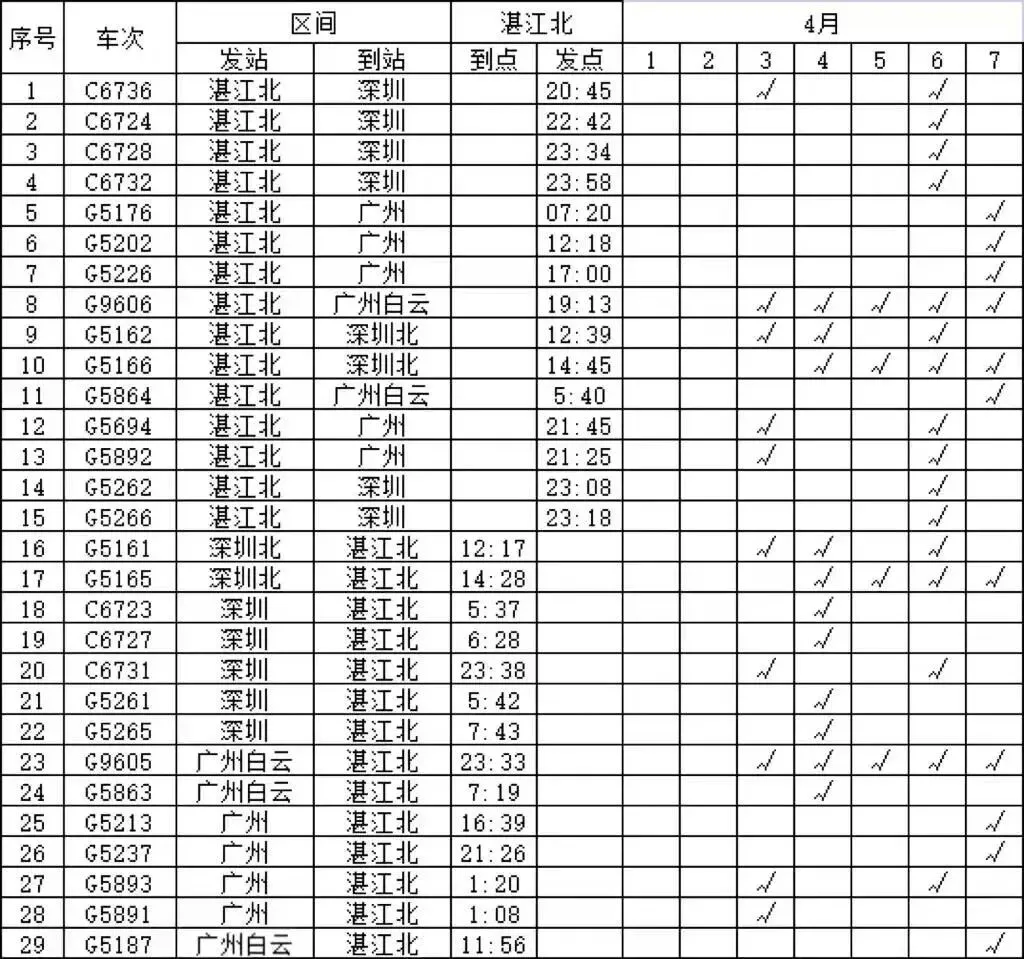 序号 车次 区间 湛江北 4月
发站 到站 到点 发点 1 2 3 4 5 6 7
1 C6736 湛江北 深圳 20:45 √ √
2 C6724 湛江北 深圳 22:42 √
3 C6728 湛江北 深圳 23:34 √
4 C6732 湛江北 深圳 23:58 √
5 G5176 湛江北 广州 07:20 √
6 G5202 湛江北 广州 12:18 √
7 G5226 湛江北 广州 17:00 √
8 G9606 湛江北 广州白云 19:13 √ √ √ √ √
9 G5162 湛江北 深圳北 12:39 √ √ √
10 G5166 湛江北 深圳北 14:45 √ √ √ √
11 G5864 湛江北 广州白云 5:40 √
12 G5694 湛江北 广州 21:45 √ √
13 G5892 湛江北 广州 21:25 √ √
14 G5262 湛江北 深圳 23:08 √
15 G5266 湛江北 深圳 23:18 √
16 G5161 深圳北 湛江北 12:17 √ √ √
17 G5165 深圳北 湛江北 14:28 √ √ √ √
18 C6723 深圳 湛江北 5:37 √
19 C6727 深圳 湛江北 6:28 √
20 C6731 深圳 湛江北 23:38 √ √
21 G5261 深圳 湛江北 5:42 √
22 G5265 深圳 湛江北 7:43 √
23 G9605 广州白云 湛江北 23:33 √ √ √ √ √
24 G5863 广州白云 湛江北 7:19 √
25 G5213 广州 湛江北 16:39 √
26 G5237 广州 湛江北 21:26 √
27 G5893 广州 湛江北 1:20 √ √
28 G5891 广州 湛江北 1:08 √
29 G5187 广州白云 湛江北 11:56 √